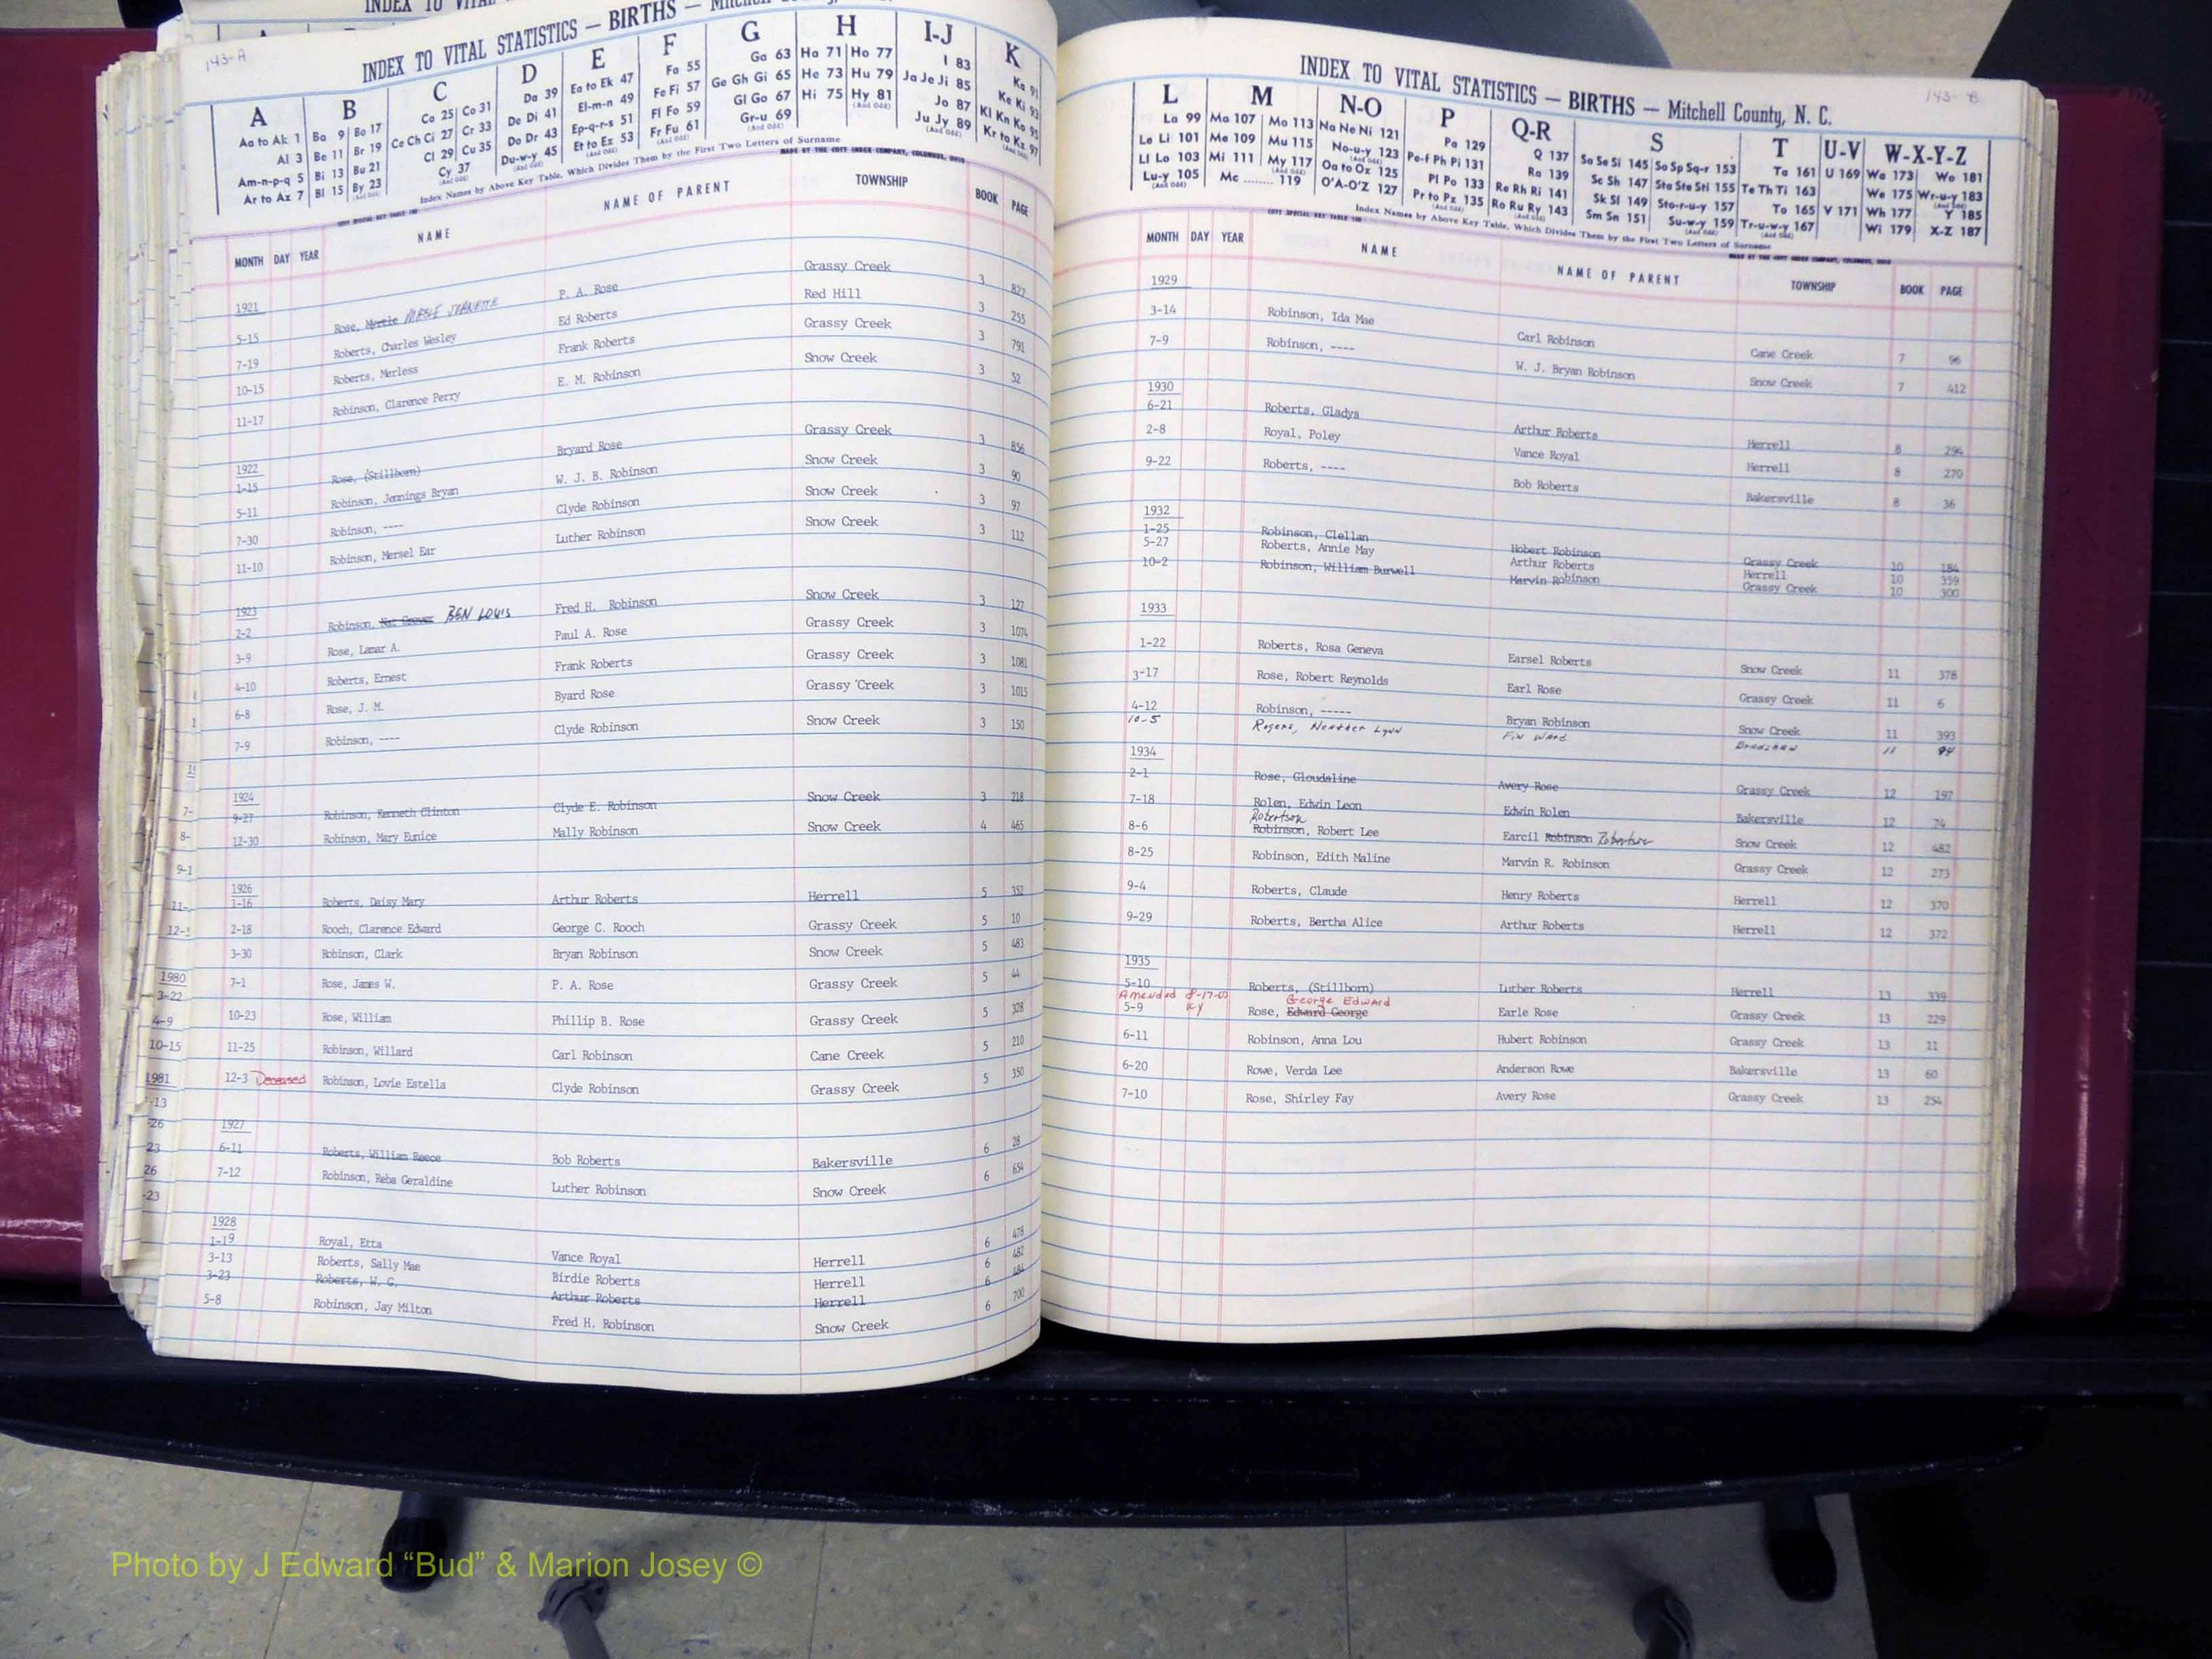 INDEX TO VITAL STATISTICS — BIRTHS —
143-A
A B C D E F G H I-J K
Aa to Ak 1 Ba 9 Bo 17 Ca 25 Co 31 Da 39 Ea to Ek 47 Fa 55 Ga 63 Ha 71 Ho 77 I 83 Ka 91
Al 3 Be 11 Br 19 Ce Ch Ci 27 Cr 33 De Di 41 El-m-n 49 Fe Fi 57 Ge Gh Gi 65 He 73 Hu 79 Ja Je Ji 85 Ke Ki 93
Am-n-p-q 5 Bi 13 Bu 21 Cl 29 Cu 35 Do Dr 43 Ep-q-r-s 51 Fl Fo 59 Gl Go 67 Hi 75 Hy 81 Jo 87 Kl Kn Ko 95
Ar to Az 7 Bl 15 By 23 Cy 37 Du-w-y 45 Et to Ez 53 Fr Fu 61 Gr-u 69 Ju Jy 89 Kr to Kz 97
Index Names by Above Key Table, Which Divides Them by the First Two Letters of Surname
MADE BY THE COTT INDEX COMPANY, COLUMBUS, OHIO
MONTH DAY YEAR NAME NAME OF PARENT TOWNSHIP BOOK PAGE
1921
5-15 Rose, Myrtle MABLE JEANETTE P. A. Rose Grassy Creek 3 827
7-19 Roberts, Charles Wesley Ed Roberts Red Hill 3 255
10-15 Roberts, Merless Frank Roberts Grassy Creek 3 791
11-17 Robinson, Clarence Perry E. M. Robinson Snow Creek 3 52
1922
1-15 Rose, (Stillborn) Bryard Rose Grassy Creek 3 856
5-11 Robinson, Jennings Bryan W. J. B. Robinson Snow Creek 3 90
7-30 Robinson, ---- Clyde Robinson Snow Creek 3 97
11-10 Robinson, Mersel Ear Luther Robinson Snow Creek 3 112
1923
2-2 Robinson, BEN LOUIS Fred H. Robinson Snow Creek 3 127
3-9 Rose, Lamar A. Paul A. Rose Grassy Creek 3 1074
4-10 Roberts, Ernest Frank Roberts Grassy Creek 3 1081
6-8 Rose, J. M. Byard Rose Grassy Creek 3 1015
7-9 Robinson, ---- Clyde Robinson Snow Creek 3 150
1924
9-27 Robinson, Kenneth Clinton Clyde E. Robinson Snow Creek 3 218
12-30 Robinson, Mary Eunice Mally Robinson Snow Creek 4 465
1926
1-16 Roberts, Daisy Mary Arthur Roberts Herrell 5 352
2-18 Rooch, Clarence Edward George C. Rooch Grassy Creek 5 10
3-30 Robinson, Clark Bryan Robinson Snow Creek 5 483
7-1 Rose, James W. P. A. Rose Grassy Creek 5 44
10-23 Rose, William Phillip B. Rose Grassy Creek 5 328
11-25 Robinson, Willard Carl Robinson Cane Creek 5 210
12-3 Deceased Robinson, Lovie Estella Clyde Robinson Grassy Creek 5 350
1927
6-11 Roberts, William Reece Bob Roberts Bakersville 6 28
7-12 Robinson, Reba Geraldine Luther Robinson Snow Creek 6 654
1928
1-19 Royal, Etta Vance Royal Herrell 6 478
3-13 Roberts, Sally Mae Birdie Roberts Herrell 6 482
3-23 Roberts, W. G. Arthur Roberts Herrell 6 484
5-8 Robinson, Jay Milton Fred H. Robinson Snow Creek 6 700
1980
3-22
4-9
10-15
1981
INDEX TO VITAL STATISTICS — BIRTHS — Mitchell County, N. C.
143-B
L M N-O P Q-R S T U-V W-X-Y-Z
La 99 Ma 107 Mo 113 Na Ne Ni 121 Pa 129 Q 137 Sa Se Si 145 So Sp Sq-r 153 Ta 161 U 169 Wa 173 Wo 181
Le Li 101 Me 109 Mu 115 No-u-y 123 Pe-f Ph Pi 131 Ra 139 Sc Sh 147 Sta Ste Sti 155 Te Th Ti 163 We 175 Wr-u-y 183
Ll Lo 103 Mi 111 My 117 Oa to Oz 125 Pl Po 133 Re Rh Ri 141 Sk Sl 149 Sto-r-u-y 157 To 165 V 171 Wh 177 Y 185
Lu-y 105 Mc ........ 119 O'A-O'Z 127 Pr to Pz 135 Ro Ru Ry 143 Sm Sn 151 Su-w-y 159 Tr-u-w-y 167 Wi 179 X-Z 187
Index Names by Above Key Table, Which Divides Them by the First Two Letters of Surname
MONTH DAY YEAR NAME NAME OF PARENT TOWNSHIP BOOK PAGE
1929
3-14 Robinson, Ida Mae Carl Robinson Cane Creek 7 96
7-9 Robinson, ---- W. J. Bryan Robinson Snow Creek 7 412
1930
6-21 Roberts, Gladys Arthur Roberts Herrell 8 294
2-8 Royal, Poley Vance Royal Herrell 8 270
9-22 Roberts, ---- Bob Roberts Bakersville 8 36
1932
1-25 Robinson, Clellan Hobert Robinson Grassy Creek 10 184
5-27 Roberts, Annie May Arthur Roberts Herrell 10 359
10-2 Robinson, William Burwell Marvin Robinson Grassy Creek 10 300
1933
1-22 Roberts, Rosa Geneva Earsel Roberts Snow Creek 11 378
3-17 Rose, Robert Reynolds Earl Rose Grassy Creek 11 6
4-12 Robinson, ----- Bryan Robinson Snow Creek 11 393
10-5 Rogers, Heather Lynn Fin Ward Bradshaw 11 94
1934
2-1 Rose, Gloudaline Avery Rose Grassy Creek 12 197
7-18 Rolen, Edwin Leon Edwin Rolen Bakersville 12 74
Robertson
8-6 Robinson, Robert Lee Earcil Robinson Robertson Snow Creek 12 482
8-25 Robinson, Edith Maline Marvin R. Robinson Grassy Creek 12 273
9-4 Roberts, Claude Henry Roberts Herrell 12 370
9-29 Roberts, Bertha Alice Arthur Roberts Herrell 12 372
1935
5-10 Roberts, (Stillborn) Luther Roberts Herrell 13 339
Amended 8-17-00 George Edward
5-9 KY Rose, Edward George Earle Rose Grassy Creek 13 229
6-11 Robinson, Anna Lou Hubert Robinson Grassy Creek 13 11
6-20 Rowe, Verda Lee Anderson Rowe Bakersville 13 60
7-10 Rose, Shirley Fay Avery Rose Grassy Creek 13 254
Photo by J Edward “Bud” & Marion Josey ©